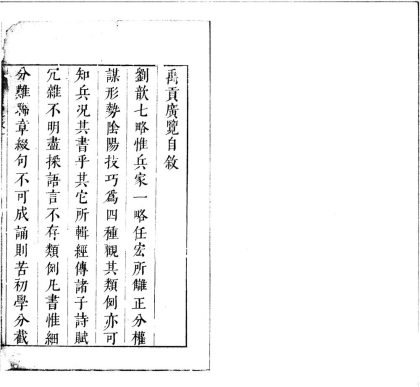 禹貢廣覽自敘
劉歆七略惟兵家一略任宏所讎正分權
謀形勢陰陽技巧爲四種觀其類例亦可
知兵况其書乎其它所輯經傳諸子詩賦
冗雜不明盡採語言不存類例凡書惟細
分難爲章綴句不可成誦則苦初學分截